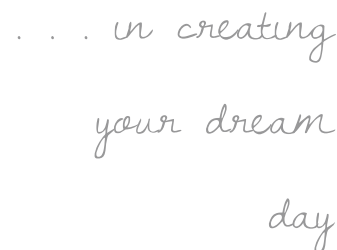 . . . in creating
your dream
day